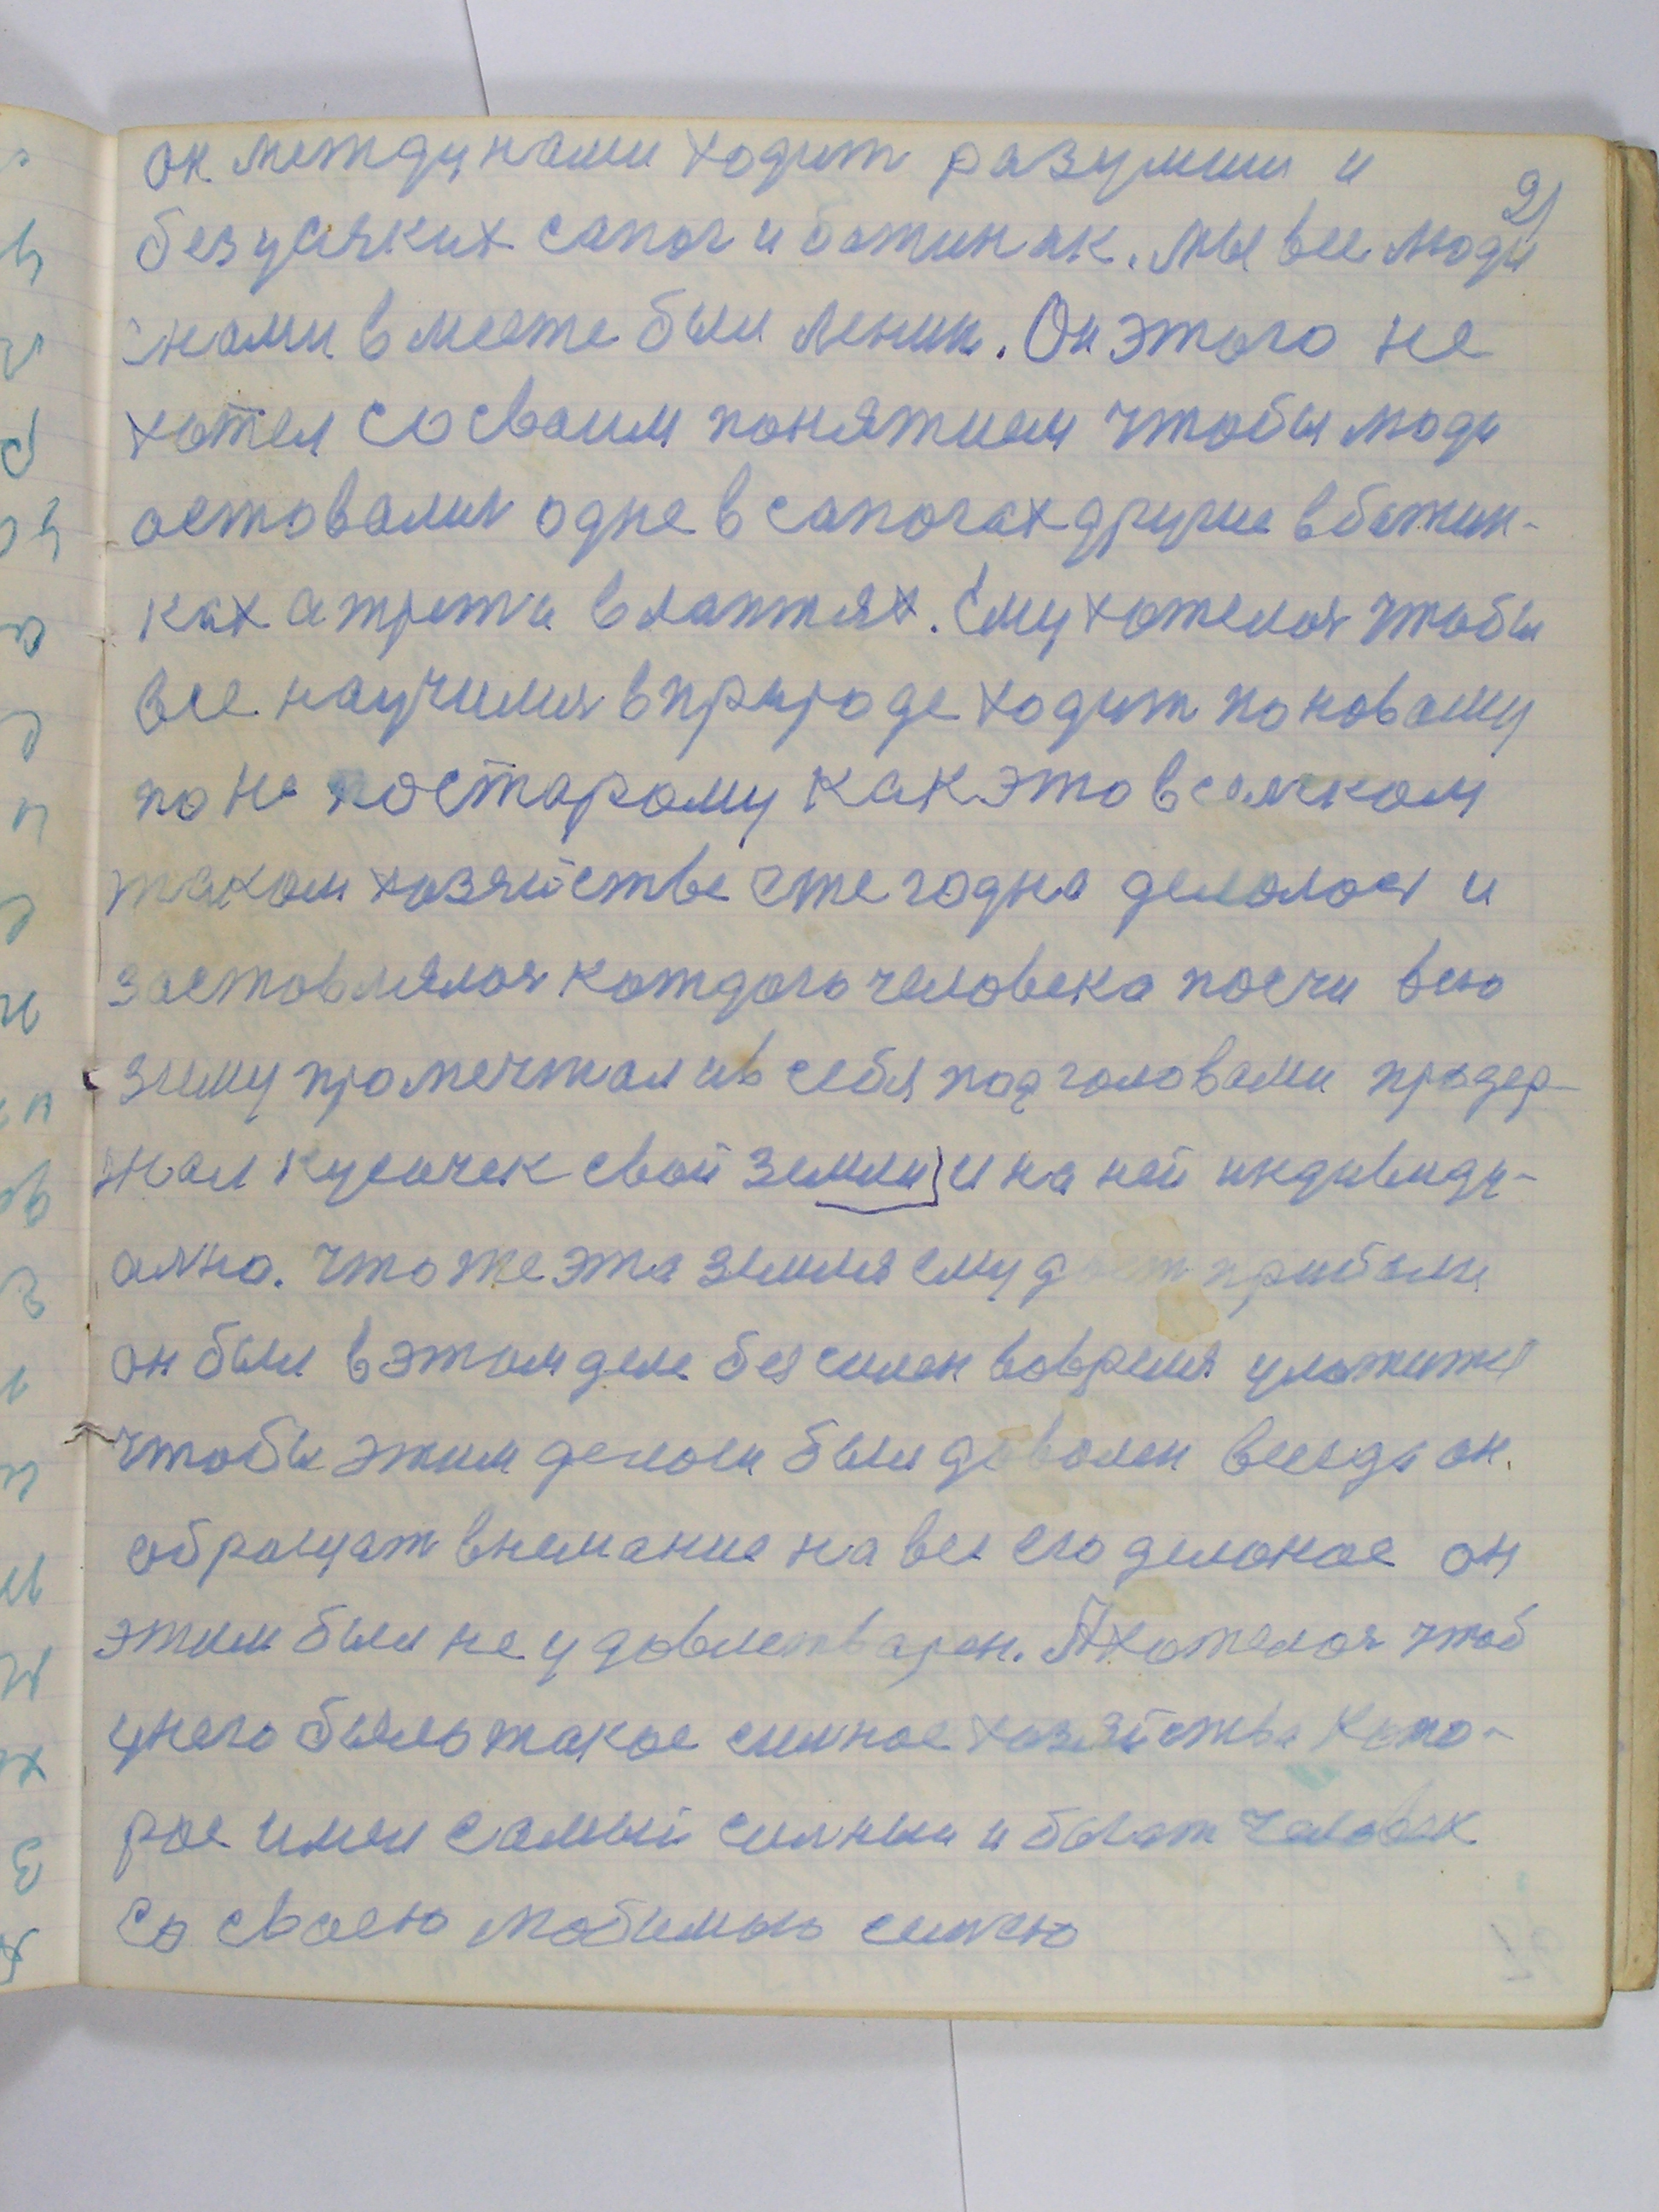 он между нами ходит разумши и
21
без усяких сапог и ботинак. мы все люди
снами вместе был Ленин. Он этого не
хотел со своим понятием чтобы люди
оставались одне в сапогах другие в ботин-
ках а трети в лаптях. Ему хотелося чтобы
все научился в природе ходит по новому
но не постарому как это всячком
таком хозяйстве ежегодна делолося и
заставлялося котдого человека посчи всю
зиму промечтал и в себя под головами продер-
жал кусочек свой земли и на ней индивиду-
ално. что же эта земля ему даст прибыли
он был в этом деле без силен вовремя уложитже
чтобы этим делом был доволен всегда он.
обращат внемание на все его делоное он
этим был не удовлетварен. А хотелося чтоб
унего было такое силное хозяйства кото-
рое имел самый силный и богат человек
со своею любимыю семъею